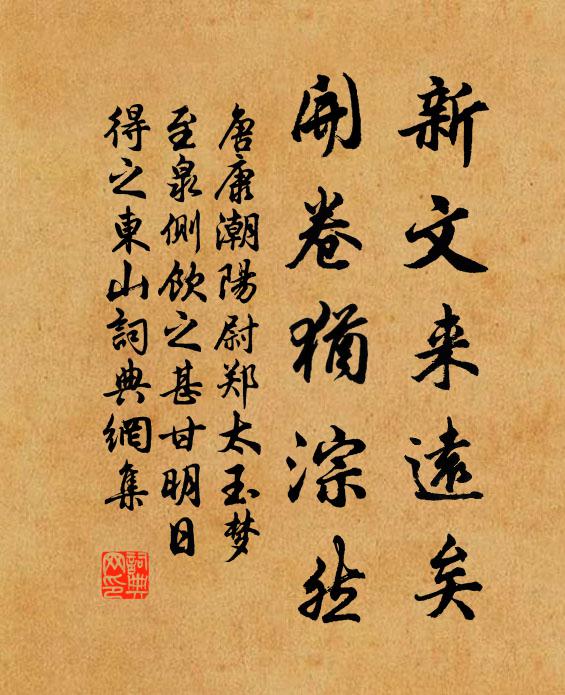 新文来遠矣
開卷猶淙然
唐庚潮陽尉郑太玉梦
至泉側飲之甚甘明日
得之東山詞典網集
詞典
网印